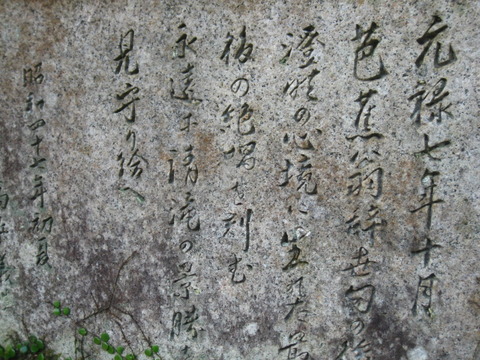 元禄七年十月
芭蕉翁辞世句の後
澄明の心境に出でた最
後の絶唱を刻む
永遠に清滝の景勝を
見守り給へ
昭和四十七年初夏